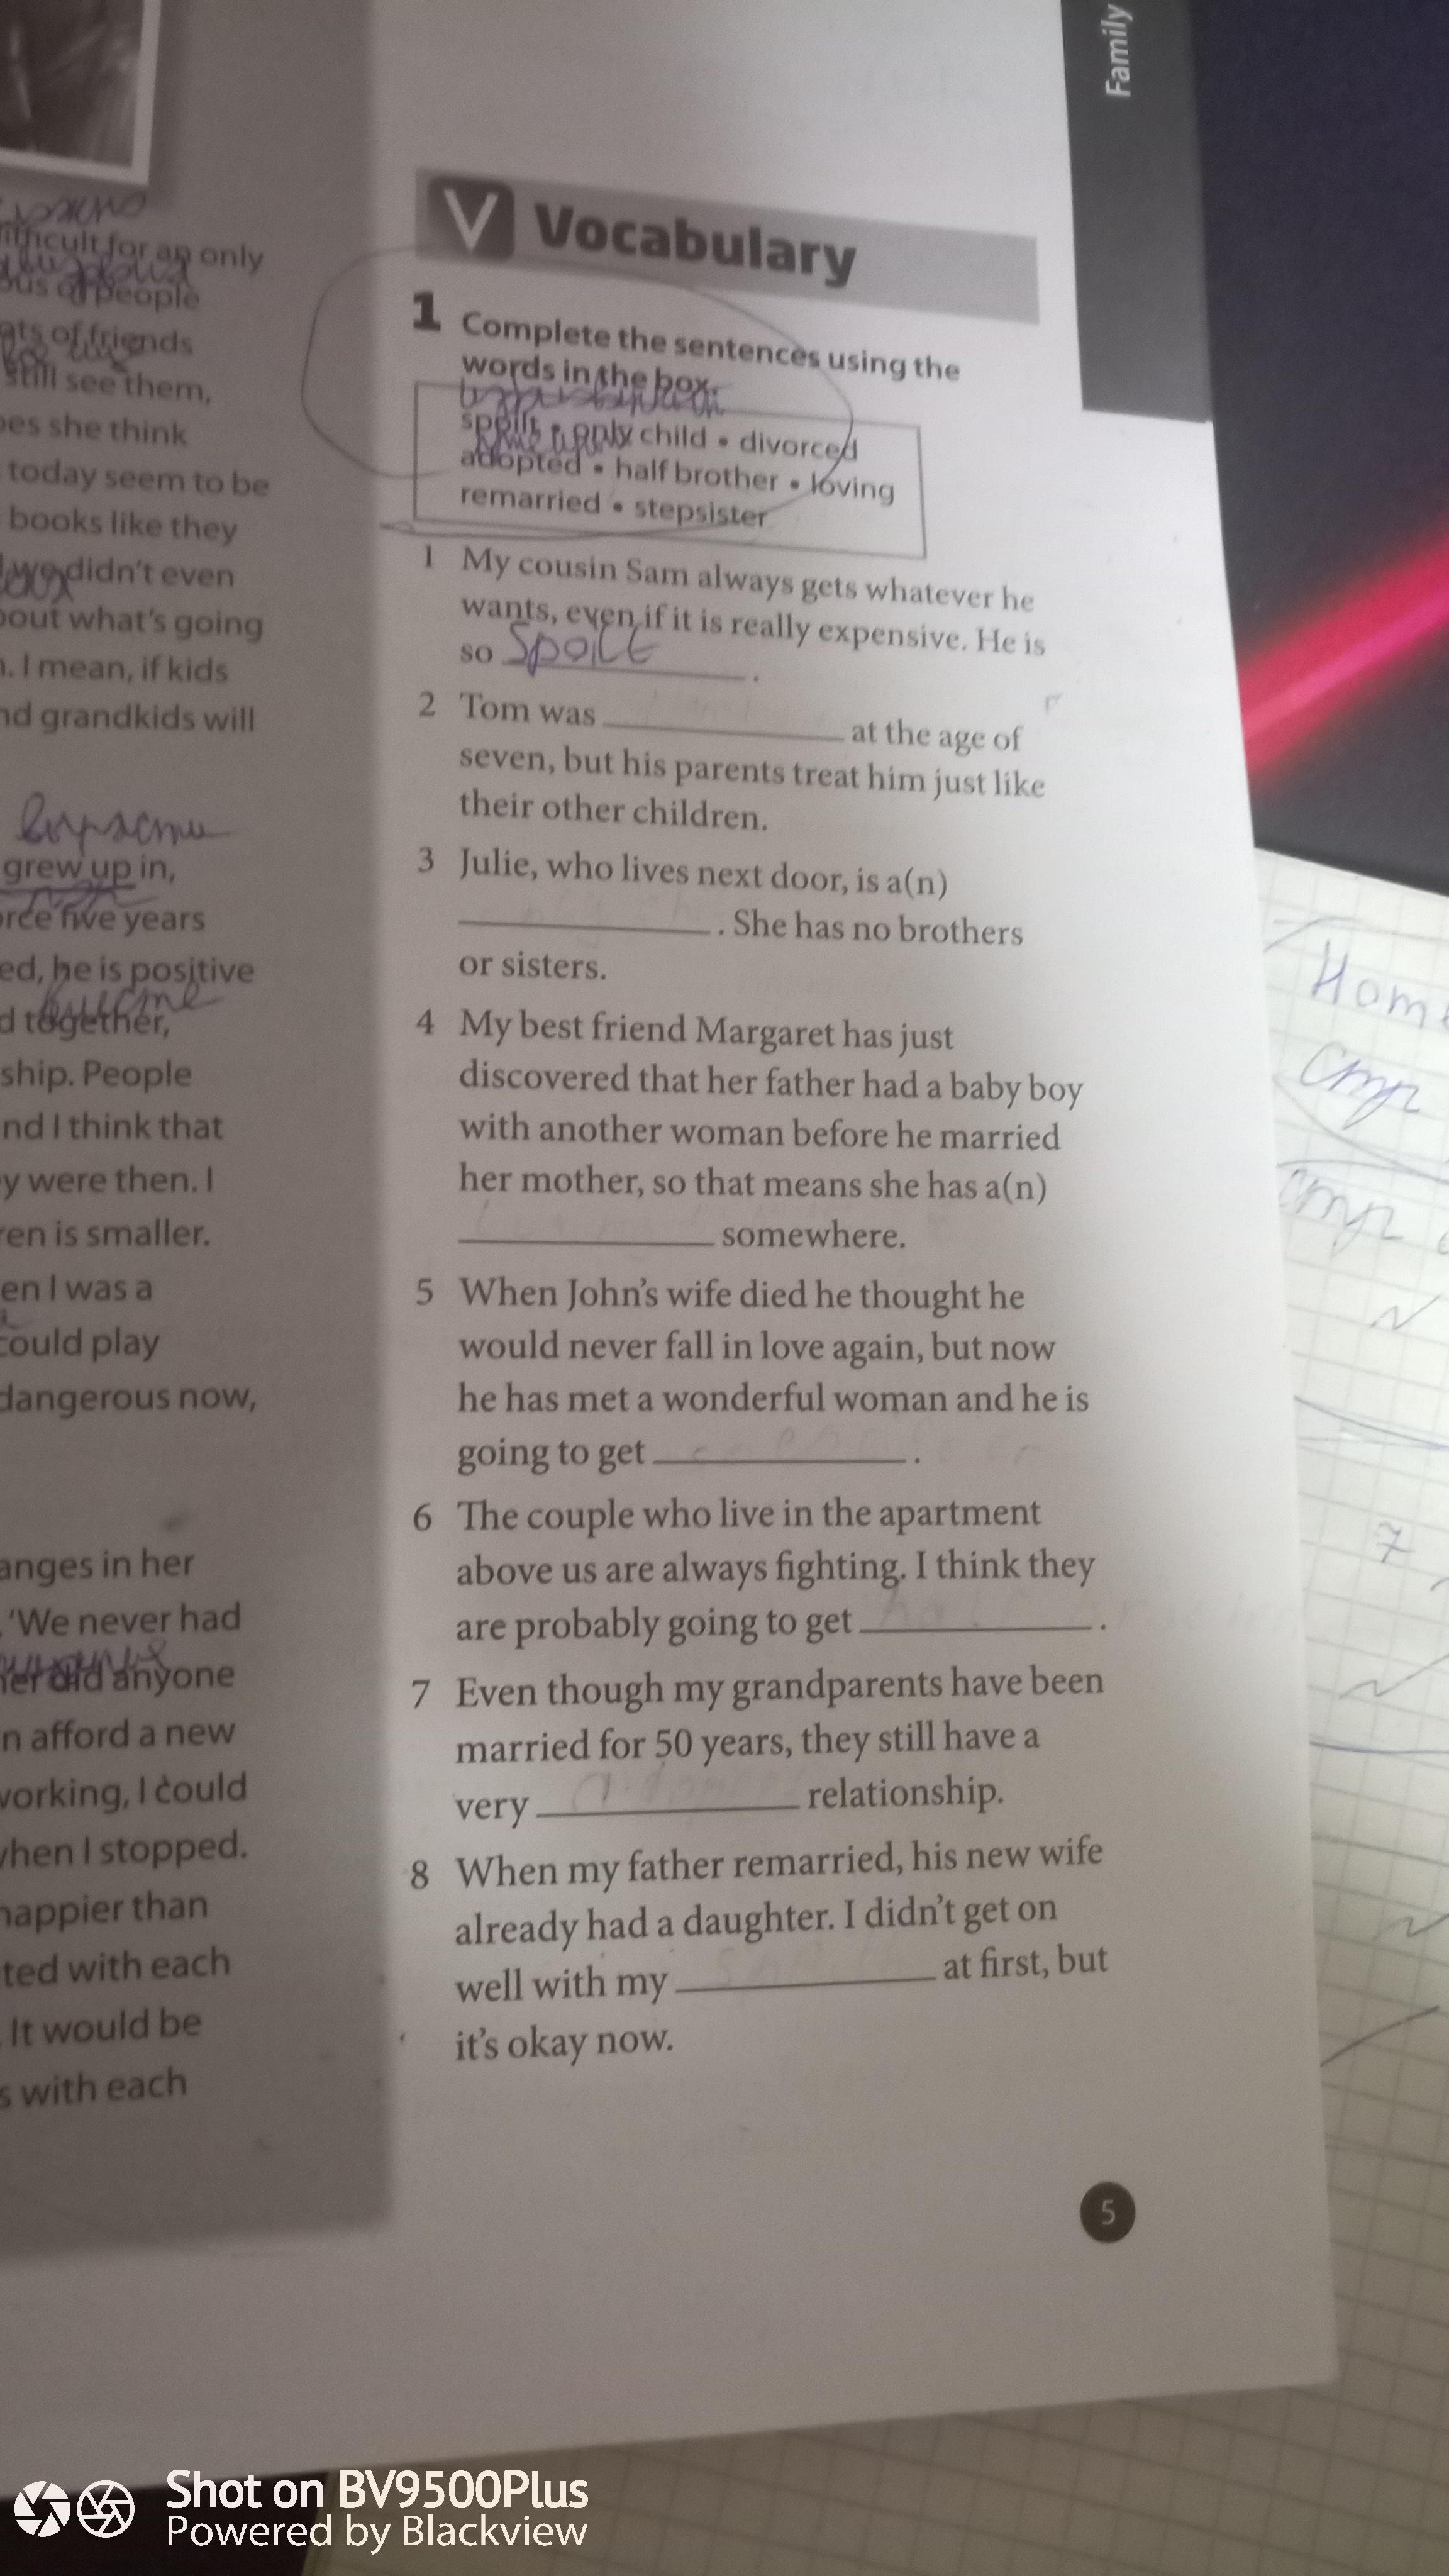 Family
Vocabulary
1 Complete the sentences using the
words in the box.
spoilt • only child • divorced
adopted • half brother • loving
remarried • stepsister
1 My cousin Sam always gets whatever he
wants, even if it is really expensive. He is
so spoilt.
2 Tom was ____ at the age of
seven, but his parents treat him just like
their other children.
3 Julie, who lives next door, is a(n)
____. She has no brothers
or sisters.
4 My best friend Margaret has just
discovered that her father had a baby boy
with another woman before he married
her mother, so that means she has a(n)
____ somewhere.
5 When John's wife died he thought he
would never fall in love again, but now
he has met a wonderful woman and he is
going to get ____.
6 The couple who live in the apartment
above us are always fighting. I think they
are probably going to get ____.
7 Even though my grandparents have been
married for 50 years, they still have a
very ____ relationship.
8 When my father remarried, his new wife
already had a daughter. I didn't get on
well with my ____ at first, but
it's okay now.
5
for an only
people
of friends
still see them,
she think
today seem to be
books like they
didn't even
what's going
I mean, if kids
grandkids will
grew up in,
five years
he is positive
together,
People
I think that
were then. I
is smaller.
I was a
could play
dangerous now,
in her
'We never had
did anyone
afford a new
working, I could
when I stopped.
happier than
with each
It would be
with each
Shot on BV9500Plus
Powered by Blackview